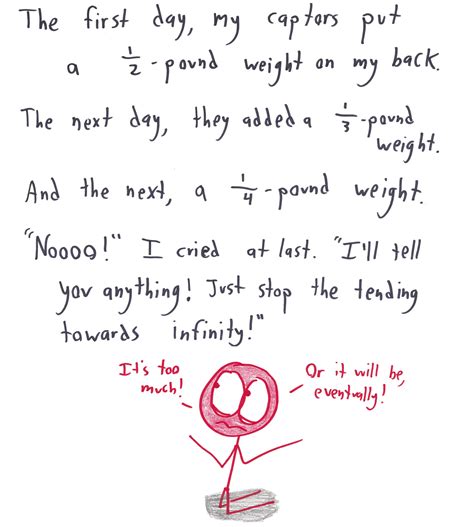 The first day, my captors put
a 1/2-pound weight on my back.
The next day, they added a 1/3-pound
weight.
And the next, a 1/4-pound weight.
"Noooo!" I cried at last. "I'll tell
you anything! Just stop the tending
towards infinity!"
It's too
much!
Or it will be,
eventually!